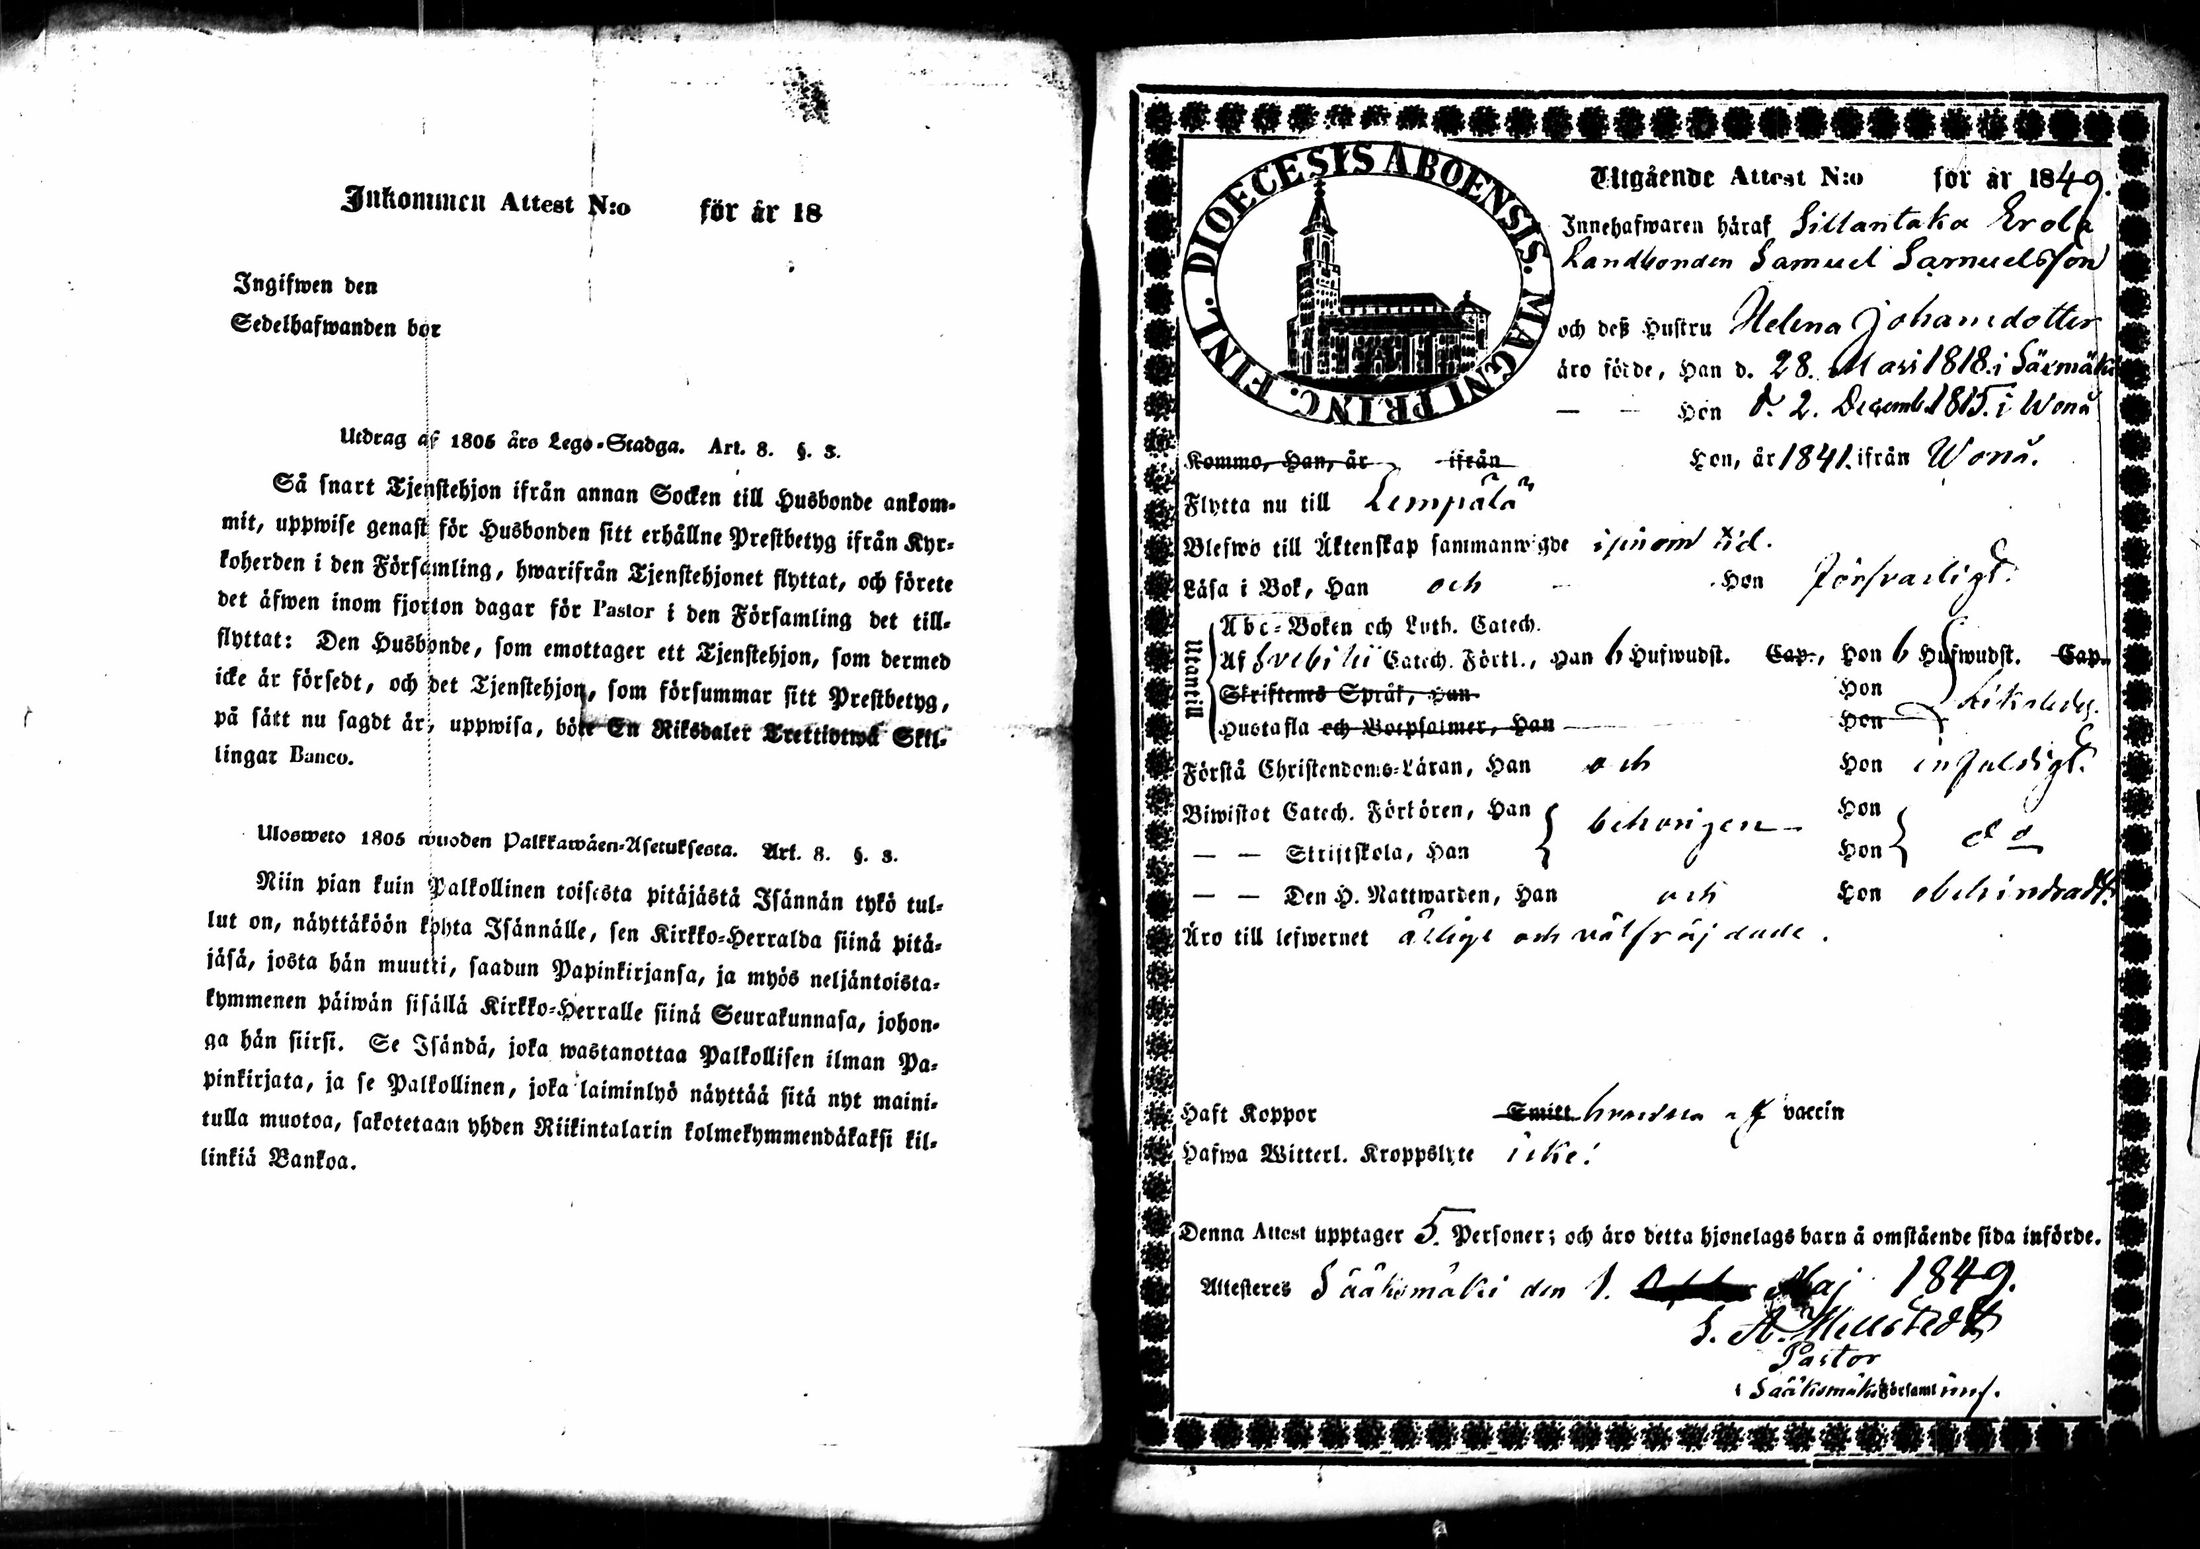 Inkommen Attest N:o för år 18
Ingifwen den
Sedelhafwanden bor
Utdrag af 1805 års Lego-Stadga. Art. 8. §. 3.
Så snart Tjenstehjon ifrån annan Socken till Husbonde ankom-
mit, uppwise genast för Husbonden sitt erhållne Prestbetyg ifrån Kyr-
koherden i den Församling, hwarifrån Tjenstehjonet flyttat, och förete
det äfwen inom fjorton dagar för Pastor i den Församling det till-
flyttat: Den Husbonde, som emottager ett Tjenstehjon, som dermed
icke är försedt, och det Tjenstehjon, som försummar sitt Prestbetyg,
på sätt nu sagdt är, uppwisa, böte En Riksdaler Trettiotwå Skil-
lingar Banco.
Ulosweto 1805 wuoden Palkkawäen-Asetuksesta. Art. 8. §. 3.
Niin pian kuin Palkollinen toisesta pitäjästä Isännän tykö tul-
lut on, näyttäköön kohta Isännälle, sen Kirkko-Herralda siinä pitä-
jäsä, josta hän muutti, saadun Papinkirjansa, ja myös neljäntoista-
kymmenen päiwän sisällä Kirkko-Herralle siinä Seurakunnasa, johon-
ga hän siirsi. Se Isändä, joka wastanottaa Palkollisen ilman Pa-
pinkirjata, ja se Palkollinen, joka laiminlyö näyttää sitä nyt maini-
tulla muotoa, sakotetaan yhden Riikintalarin kolmekymmendäkaksi kil-
linkiä Bankoa.
DIOECESIS ABOENSIS. MAGNI PRINC. FINL.
Utgående Attest N:o för år 1849.
Innehafwaren häraf Sillantaka Erola
Landbonden Samuel Samuelsson
och deß Hustru Helena Johansdotter
äro födde, Han d. 28. Mars 1818. i Säxmäki
— — Hon d. 2. Decemb. 1815. i Wonå
Kommo, Han, år ifrån Hon, år 1841. ifrån Wonå.
Flytta nu till Lempälä
Blefwo till Äktenskap sammanwigde i sinom tid.
Läsa i Bok, Han och Hon försvarligt.
Utantill
Abc-Boken och Luth. Catech.
Af Svebilii Catech. Förkl., Han 6 Hufwudst. Cap., Hon 6 Hufwudst. Cap.
Skriftenes Språk, Han Hon
Hustafla och Botpsalmer, Han Hon
Förstå Christendoms-Läran, Han och Hon enfaldigt.
Biwistat Catech. Förhören, Han behörigen Hon do
— — Skriftskola, Han Hon
— — Den H. Nattwarden, Han och Hon obehindradt.
Äro till lefwernet ärlige och välfräjdade.
Haft Koppor Smitt vaccin
Hafwa Witterl. Kroppslyte icke.
Denna Attest upptager 5. Personer; och äro detta hjonelags barn å omstående sida införde.
Attesteras Sääksmäki den 1. Maj 1849.
Pastor
i Sääksmäki Församling.